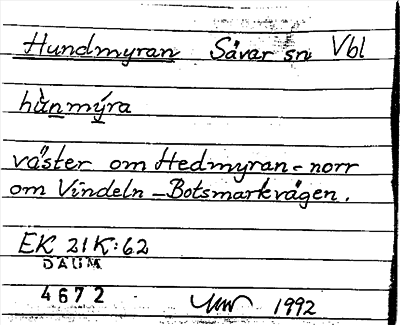 Hundmyran Sävar sn Vbl
hùnmýra
väster om Hedmyran - norr
om Vindeln - Botsmarkvägen.
EK 21K:62
DAUM
4672
1992